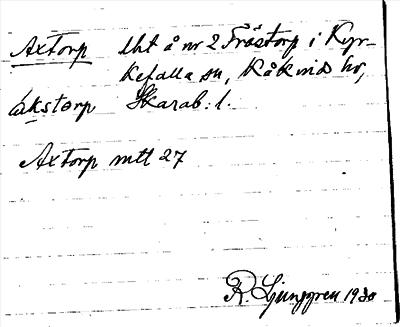 Axtorp lht å nr 2 Fröstorp i Kyr-
kefalla sn, Kåkinds hd,
àkstorp Skarab. l.
Axtorp mtl 27
R. Ljunggren 1930